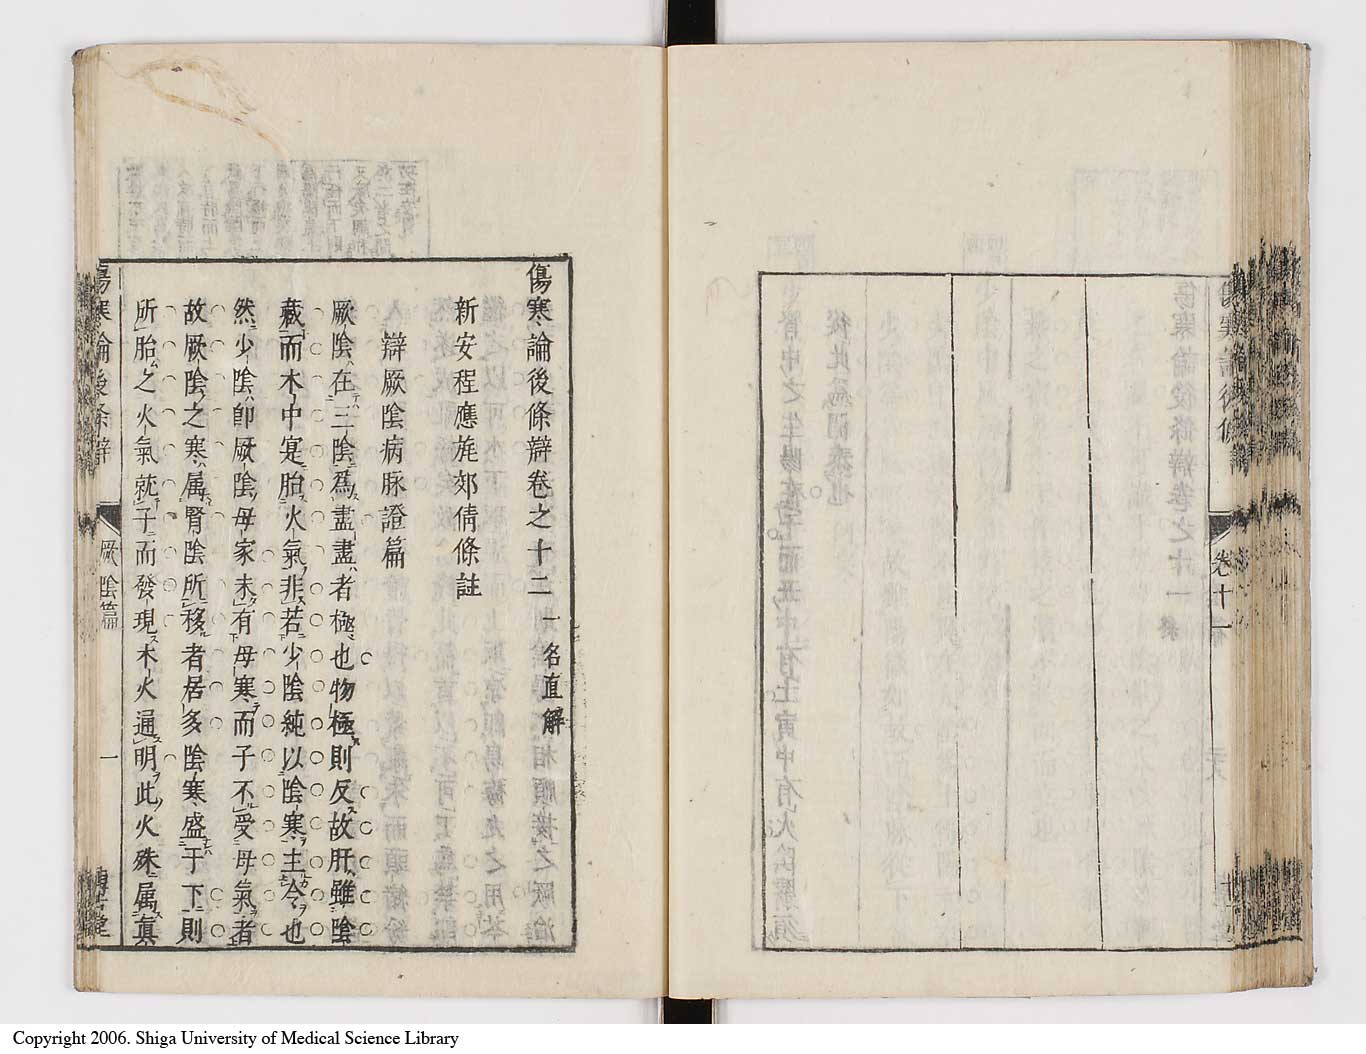 卷十一
傷寒論後條辯卷之十二 一名直解
新安程應旄郊倩條註
辯厥陰病脉證篇
厥陰在三陰爲盡盡者極也物極則反故肝雖陰
藏而木中寔胎火氣非若少陰純以陰寒主令也
然少陰卽厥陰母家未有母寒而子不受母氣者
故厥陰之寒属腎陰所移者居多陰寒盛于下則
所胎之火氣就子而發現木火通明此火殊属眞
傷寒論後条辯
厥陰篇
一
Copyright 2006. Shiga University of Medical Science Library